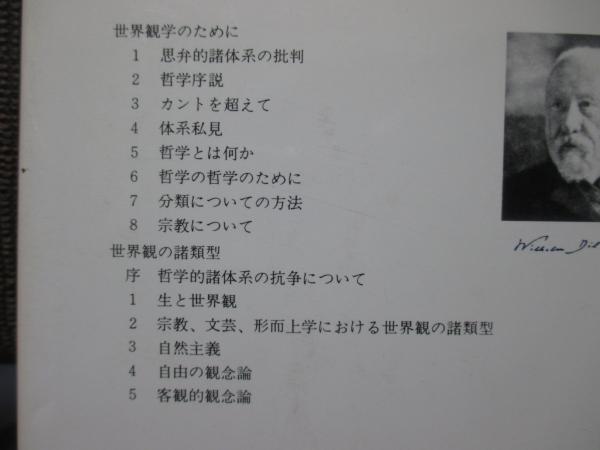 世界観学のために
1 思弁的諸体系の批判
2 哲学序説
3 カントを超えて
4 体系私見
5 哲学とは何か
6 哲学の哲学のために
7 分類についての方法
8 宗教について
世界観の諸類型
序 哲学的諸体系の抗争について
1 生と世界観
2 宗教、文芸、形而上学における世界観の諸類型
3 自然主義
4 自由の観念論
5 客観的観念論